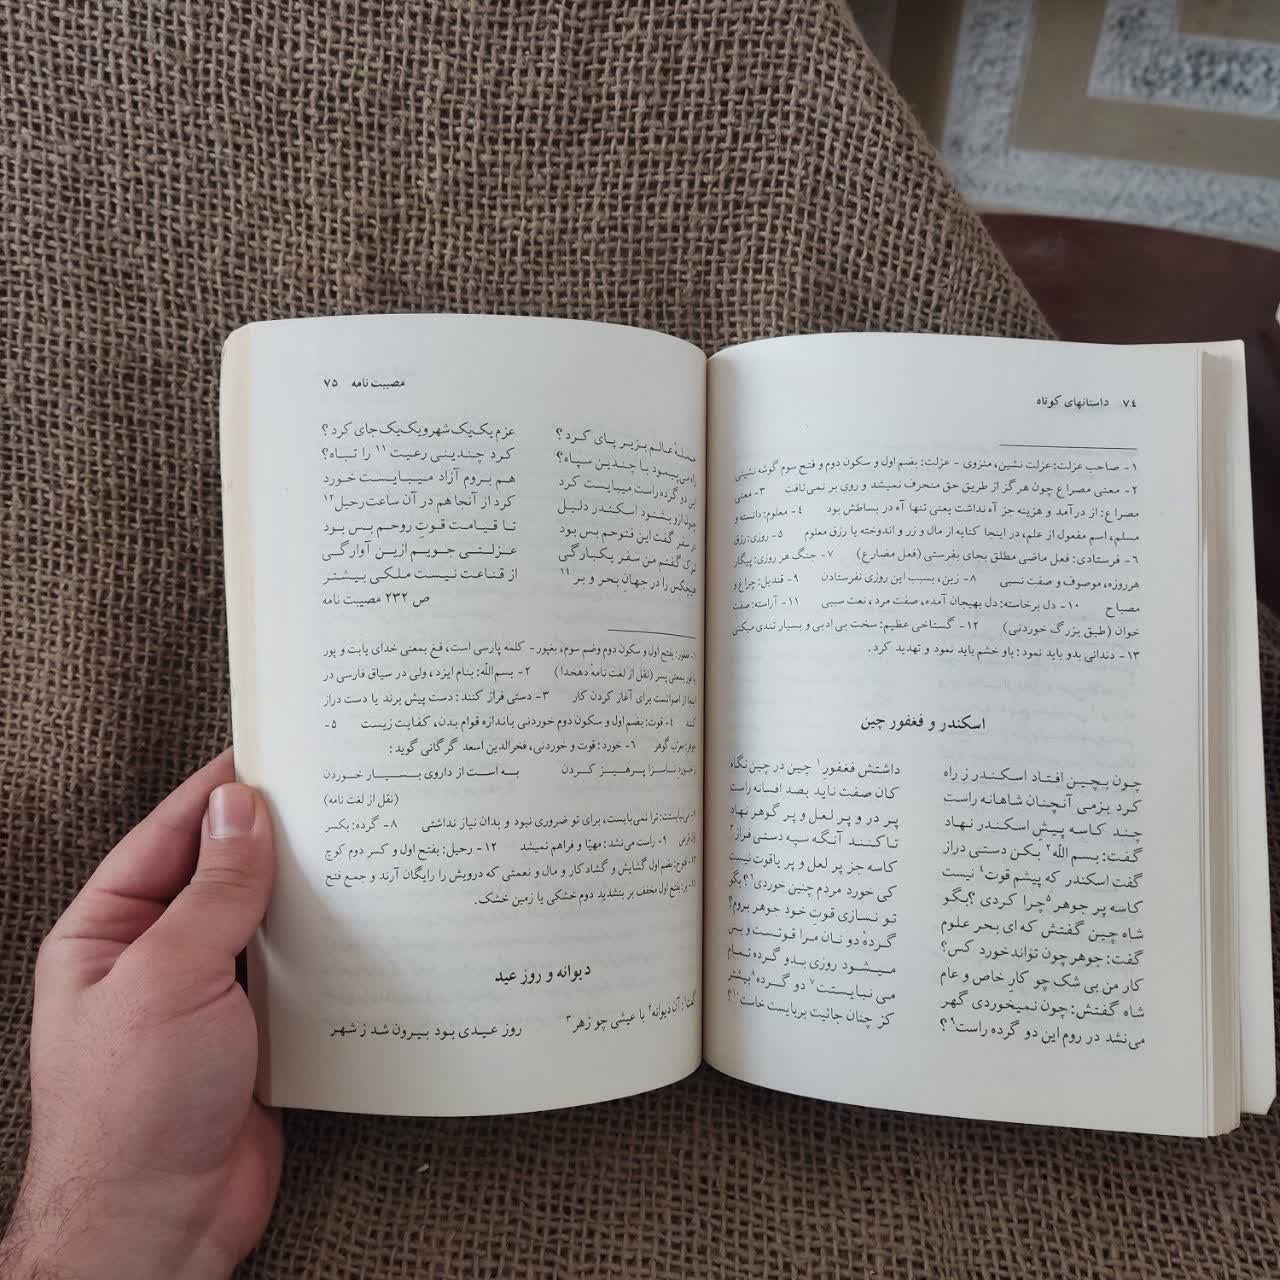 ۷۴ داستانهای کوتاه
۱- صاحب عزلت: عزلت نشین، منزوی - عزلت: بضم اول و سکون دوم و فتح سوم گوشه نشینی
۲- معنی مصراع چون هرگز از طریق حق منحرف نمیشد و روی بر نمی‌تافت ۳- معنی
مصراع: از درآمد و هزینه جز آه نداشت یعنی تنها آه در بساطش بود ۴- معلوم: دانسته و
مسلم، اسم مفعول از علم، در اینجا کنایه از مال و زر و اندوخته یا رزق معلوم ۵- روزی: رزق
۶- فرستادی: فعل ماضی مطلق بجای بفرستی (فعل مضارع) ۷- جنگ هر روزی: پیگار
هرروزه، موصوف و صفت نسبی ۸- زین، بسبب این روزی نفرستادن ۹- قندیل: چراغ و
مصباح ۱۰- دل برخاسته: دل بهیجان آمده، صفت مرد، نعت سببی ۱۱- آراسته: صفت
خوان (طبق بزرگ خوردنی) ۱۲- گستاخی عظیم: سخت بی ادبی و بسیار تندی میکنی
۱۳- دندانی بدو باید نمود: باو خشم باید نمود و تهدید کرد.
اسکندر و فغفور چین
چون بچین افتاد اسکندر ز راه داشتش فغفور۱ چین در چین نگاه
کرد بزمی آنچنان شاهانه راست کان صفت ناید بصد افسانه راست
چند کاسه پیش اسکندر نهاد پر در و پر لعل و پر گوهر نهاد
گفت: بسم الله۲ بکن دستی دراز تا کنند آنگه سپه دستی فراز۳
گفت اسکندر که پیشم قوت۴ نیست کاسه جز پر لعل و پر یاقوت نیست
کاسه پر جوهر۵ چرا کردی؟ بگو کی خورد مردم چنین خوردی۶؟ بگو
شاه چین گفتش که ای بحر علوم تو نسازی قوتِ خود جوهر بروم؟
گفت: جوهر چون تواند خورد کس؟ گردهٔ دو نان مرا قوتست و بس
کار من بی شک چو کارِ خاص و عام میشود روزی بدو گرده تمام
شاه گفتش: چون نمیخوردی گهر می نبایستت۷ دو گرده۸ بیشتر
می‌نشد در روم این دو گرده راست۹؟ کز چنان جائیت بربایست خاست۱۰؟
مصیبت نامه ۷۵
جملهٔ عالم بزیر پای کرد؟ عزم یک‌یک شهر و یک‌یک جای کرد؟
راه می‌پیمود با چندین سپاه؟ کرد چندینی رعیت۱۱ را تباه؟
این دو گرده راست میبایست کرد هم بروم آزاد میبایست خورد
چون ازو بشنود اسکندر دلیل کرد از آنجا هم در آن ساعت رحیل۱۲
در سفر گفت این فتوحم بس بود تا قیامت قوتِ روحم بس بود
ترک گفتم من سفر یکبارگی عزلتی جویم ازین آوارگی
هیچکس را در جهانِ بحر و بر۱۴ از قناعت نیست ملکی بیشتر
ص ۲۳۲ مصیبت نامه
۱- فغفور: بفتح اول و سکون دوم وضم سوم، بغپور - کلمه پارسی است، فغ بمعنی خدای یابت و پور
یا فور بمعنی پسر (نقل از لغت نامهٔ دهخدا) ۲- بسم‌الله: بنام ایزد، ولی در سیاق فارسی در
اینجا از اصواتست برای آغاز کردن کار ۳- دستی فراز کنند: دست پیش برند یا دست دراز
کنند ۴- قوت: بضم اول و سکون دوم خوردنی باندازه قوام بدن، کفایت زیست ۵-
جوهر: معرب گوهر ۶- خورد: قوت و خوردنی، فخرالدین اسعد گرگانی گوید:
زخورد ناسزا پرهیز کردن به است از داروی بسیار خوردن
(نقل از لغت نامه)
۷- می‌نبایستت: ترا نمی‌بایست، برای تو ضروری نبود و بدان نیاز نداشتی ۸- گرده: بکسر
اول قرص ۹- راست می‌نشد: مهیّا و فراهم نمیشد ۱۲- رحیل: بفتح اول و کسر دوم کوچ
۱۳- فتوح: بضم اول گشایش و گشاد کار و مال و نعمتی که درویش را رایگان آرند و جمع فتح
بر: بفتح اول مخفف بر بتشدید دوم خشکی یا زمین خشک.
دیوانه و روز عید
آن دیوانه۲ با عیشی چو زهر۳ روز عیدی بود بیرون شد ز شهر